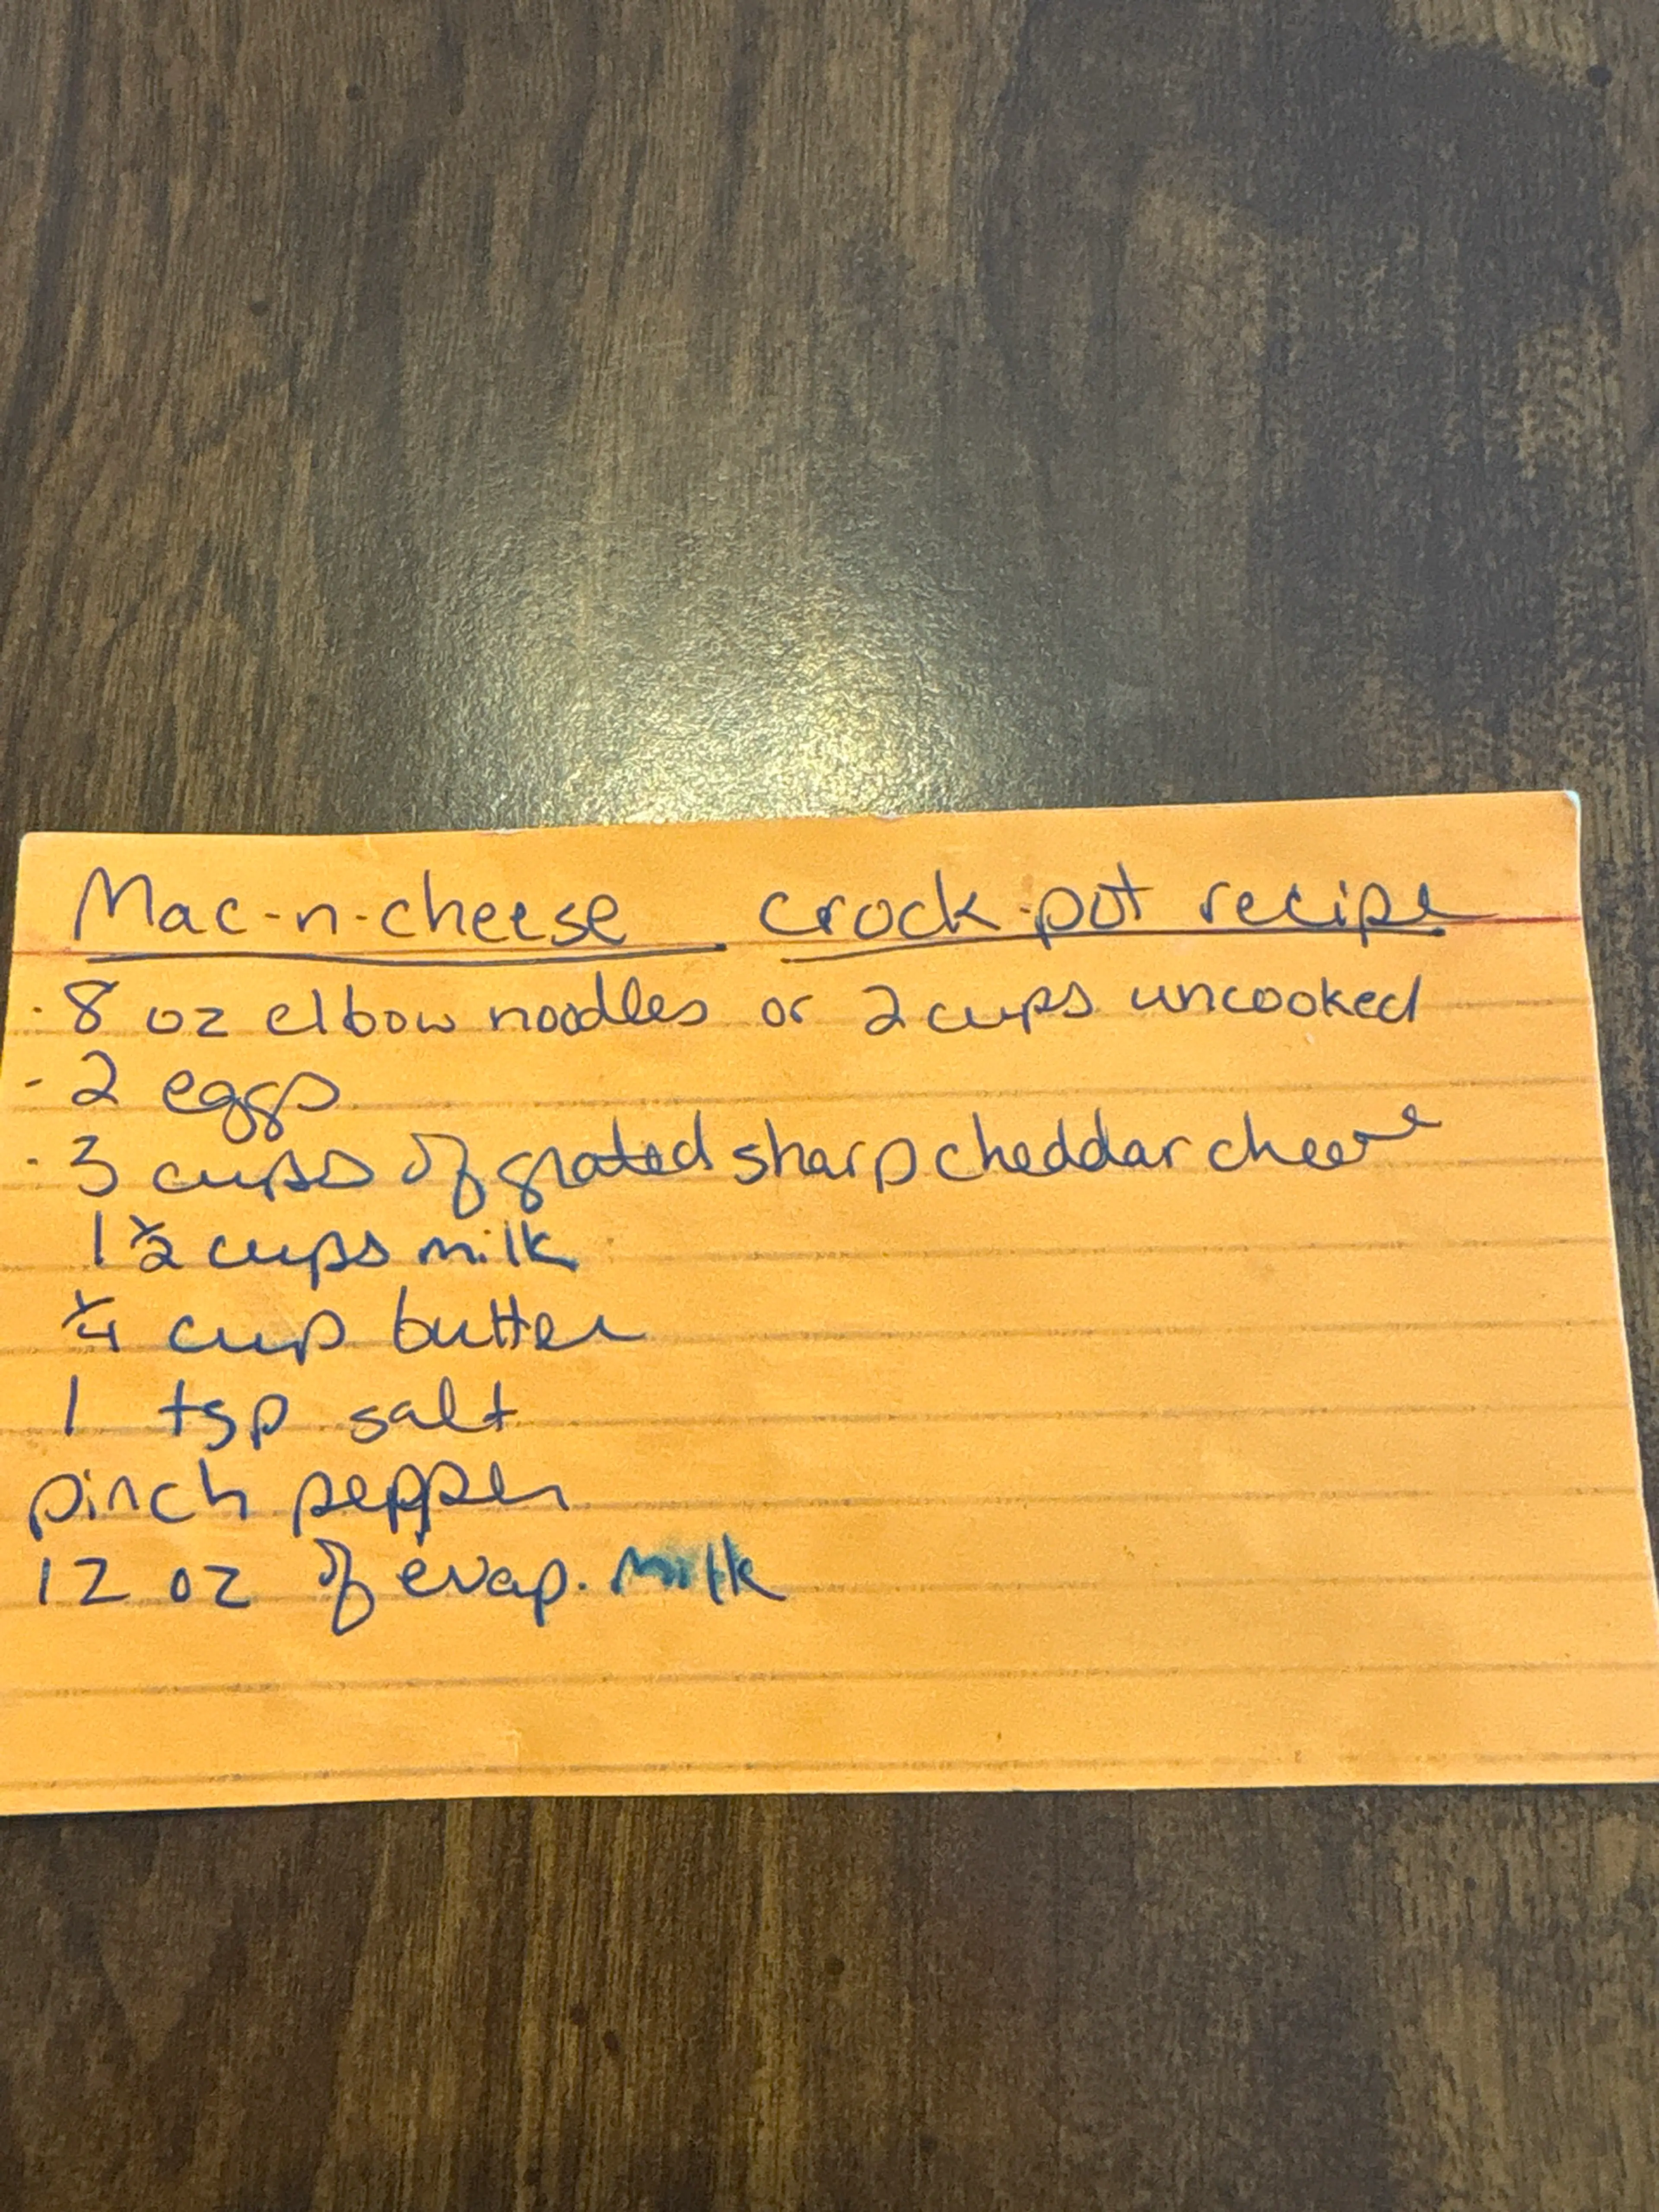 Mac-n-cheese crock-pot recipe
- 8 oz elbow noodles or 2 cups uncooked
- 2 eggs
- 3 cups of grated sharp cheddar cheese
1 1/2 cups milk
1/4 cup butter
1 tsp salt
pinch pepper
12 oz of evap. milk